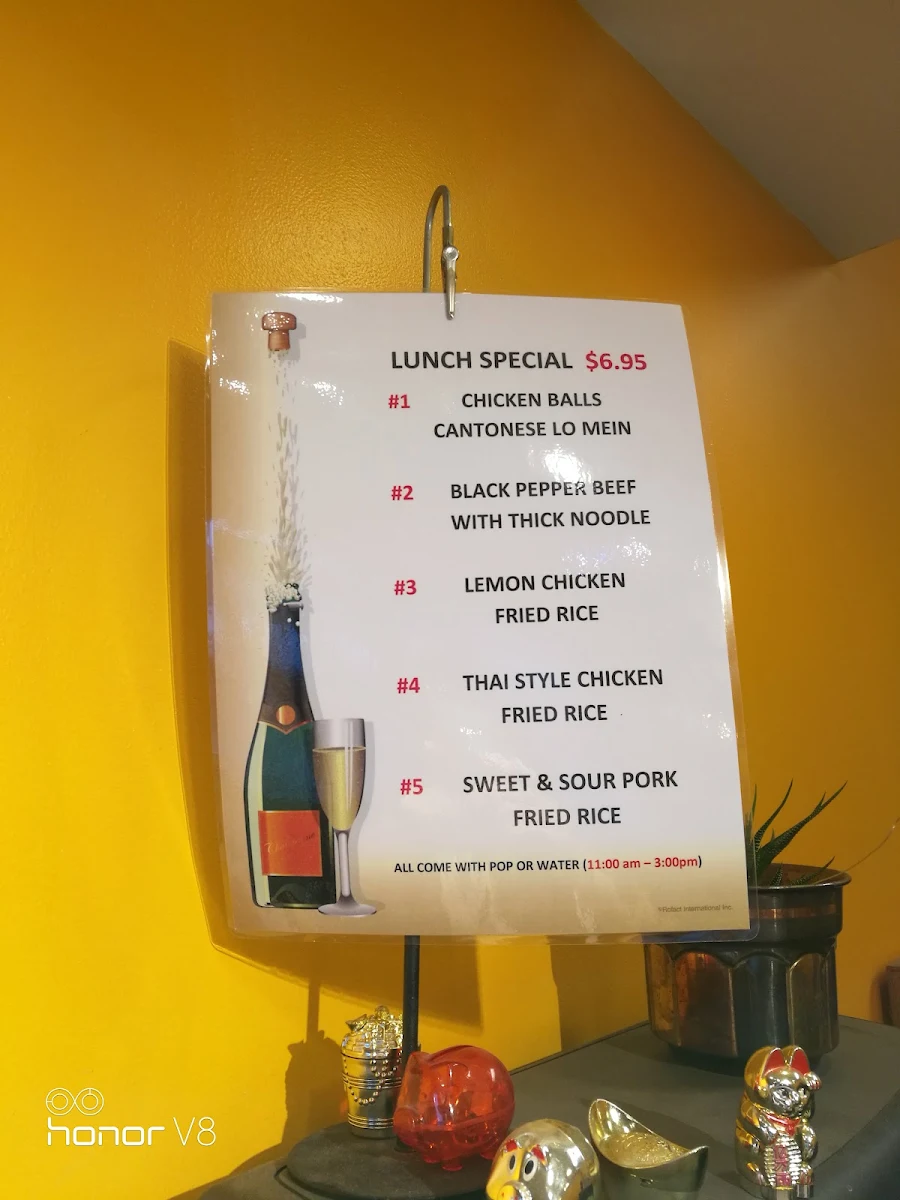 LUNCH SPECIAL $6.95
#1 CHICKEN BALLS
CANTONESE LO MEIN
#2 BLACK PEPPER BEEF
WITH THICK NOODLE
#3 LEMON CHICKEN
FRIED RICE
#4 THAI STYLE CHICKEN
FRIED RICE
#5 SWEET & SOUR PORK
FRIED RICE
ALL COME WITH POP OR WATER (11:00 am – 3:00pm)
International Inc.
honor V8